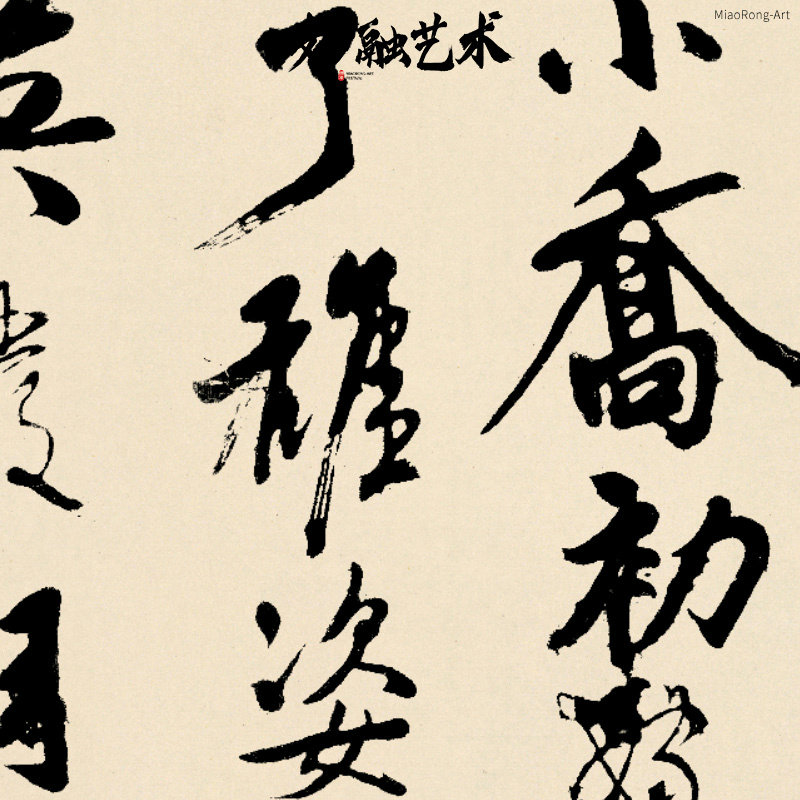 MiaoRong-Art
融艺术
小喬初
了雄姿
英發